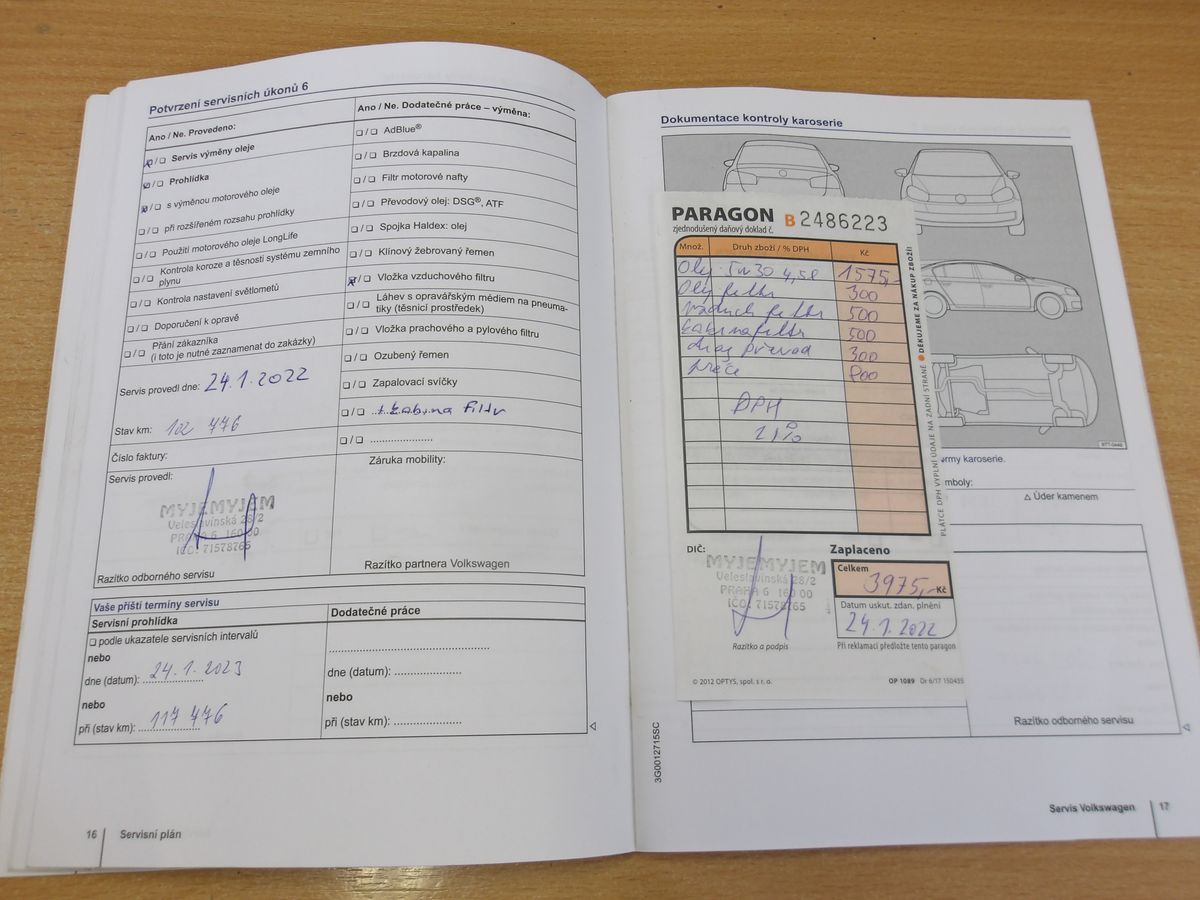 Potvrzení servisních úkonů 6
Ano / Ne. Provedeno:
❏ / ❏ Servis výměny oleje
❏ / ❏ Prohlídka
❏ / ❏ s výměnou motorového oleje
❏ / ❏ při rozšířeném rozsahu prohlídky
❏ / ❏ Použití motorového oleje LongLife
❏ / ❏ Kontrola koroze a těsnosti systému zemního
plynu
❏ / ❏ Kontrola nastavení světlometů
❏ / ❏ Doporučení k opravě
❏ / ❏ Přání zákazníka
(i toto je nutné zaznamenat do zakázky)
Servis provedl dne: 24.1.2022
Stav km: 102 476
Číslo faktury:
Servis provedl:
MYJEMYJEM
Veleslavínská 28/2
PRAHA 6 160 00
IČO: 71578765
Razítko odborného servisu
Ano / Ne. Dodatečné práce – výměna:
❏ / ❏ AdBlue®
❏ / ❏ Brzdová kapalina
❏ / ❏ Filtr motorové nafty
❏ / ❏ Převodový olej: DSG®, ATF
❏ / ❏ Spojka Haldex: olej
❏ / ❏ Klínový žebrovaný řemen
❏ / ❏ Vložka vzduchového filtru
❏ / ❏ Láhev s opravářským médiem na pneuma-
tiky (těsnicí prostředek)
❏ / ❏ Vložka prachového a pylového filtru
❏ / ❏ Ozubený řemen
❏ / ❏ Zapalovací svíčky
❏ / ❏ Kabina filtr
❏ / ❏ .....................
Záruka mobility:
Razítko partnera Volkswagen
Vaše příští termíny servisu
Servisní prohlídka
❏ podle ukazatele servisních intervalů
nebo
dne (datum): 24.1.2023
nebo
při (stav km): 117 476
Dodatečné práce
dne (datum): ....................
nebo
při (stav km): ....................
16 Servisní plán
Dokumentace kontroly karoserie
PARAGON B 2486223
zjednodušený daňový doklad č.
Množ. Druh zboží / % DPH Kč
Olej 5W30 4,5l 1575,-
Olej filtr 300
Vzduch filtr 500
Kabina filtr 500
300
Práce 800
DPH
21%
DĚKUJEME ZA NÁKUP ZBOŽÍ!
PLÁTCE DPH VYPLNÍ ÚDAJE NA ZADNÍ STRANĚ
DIČ:
MYJEMYJEM
Veleslavínská 28/2
PRAHA 6 160 00
IČO: 71578765
Razítko a podpis
Zaplaceno
Celkem
3975,- Kč
Datum uskut. zdan. plnění
24.1.2022
Při reklamaci předložte tento paragon
© 2012 OPTYS, spol. s r. o. OP 1089 Dr 6/17 150435
B7T-0446
ormy karoserie.
mboly:
△ Úder kamenem
Razítko odborného servisu
3G0012715SC
Servis Volkswagen 17